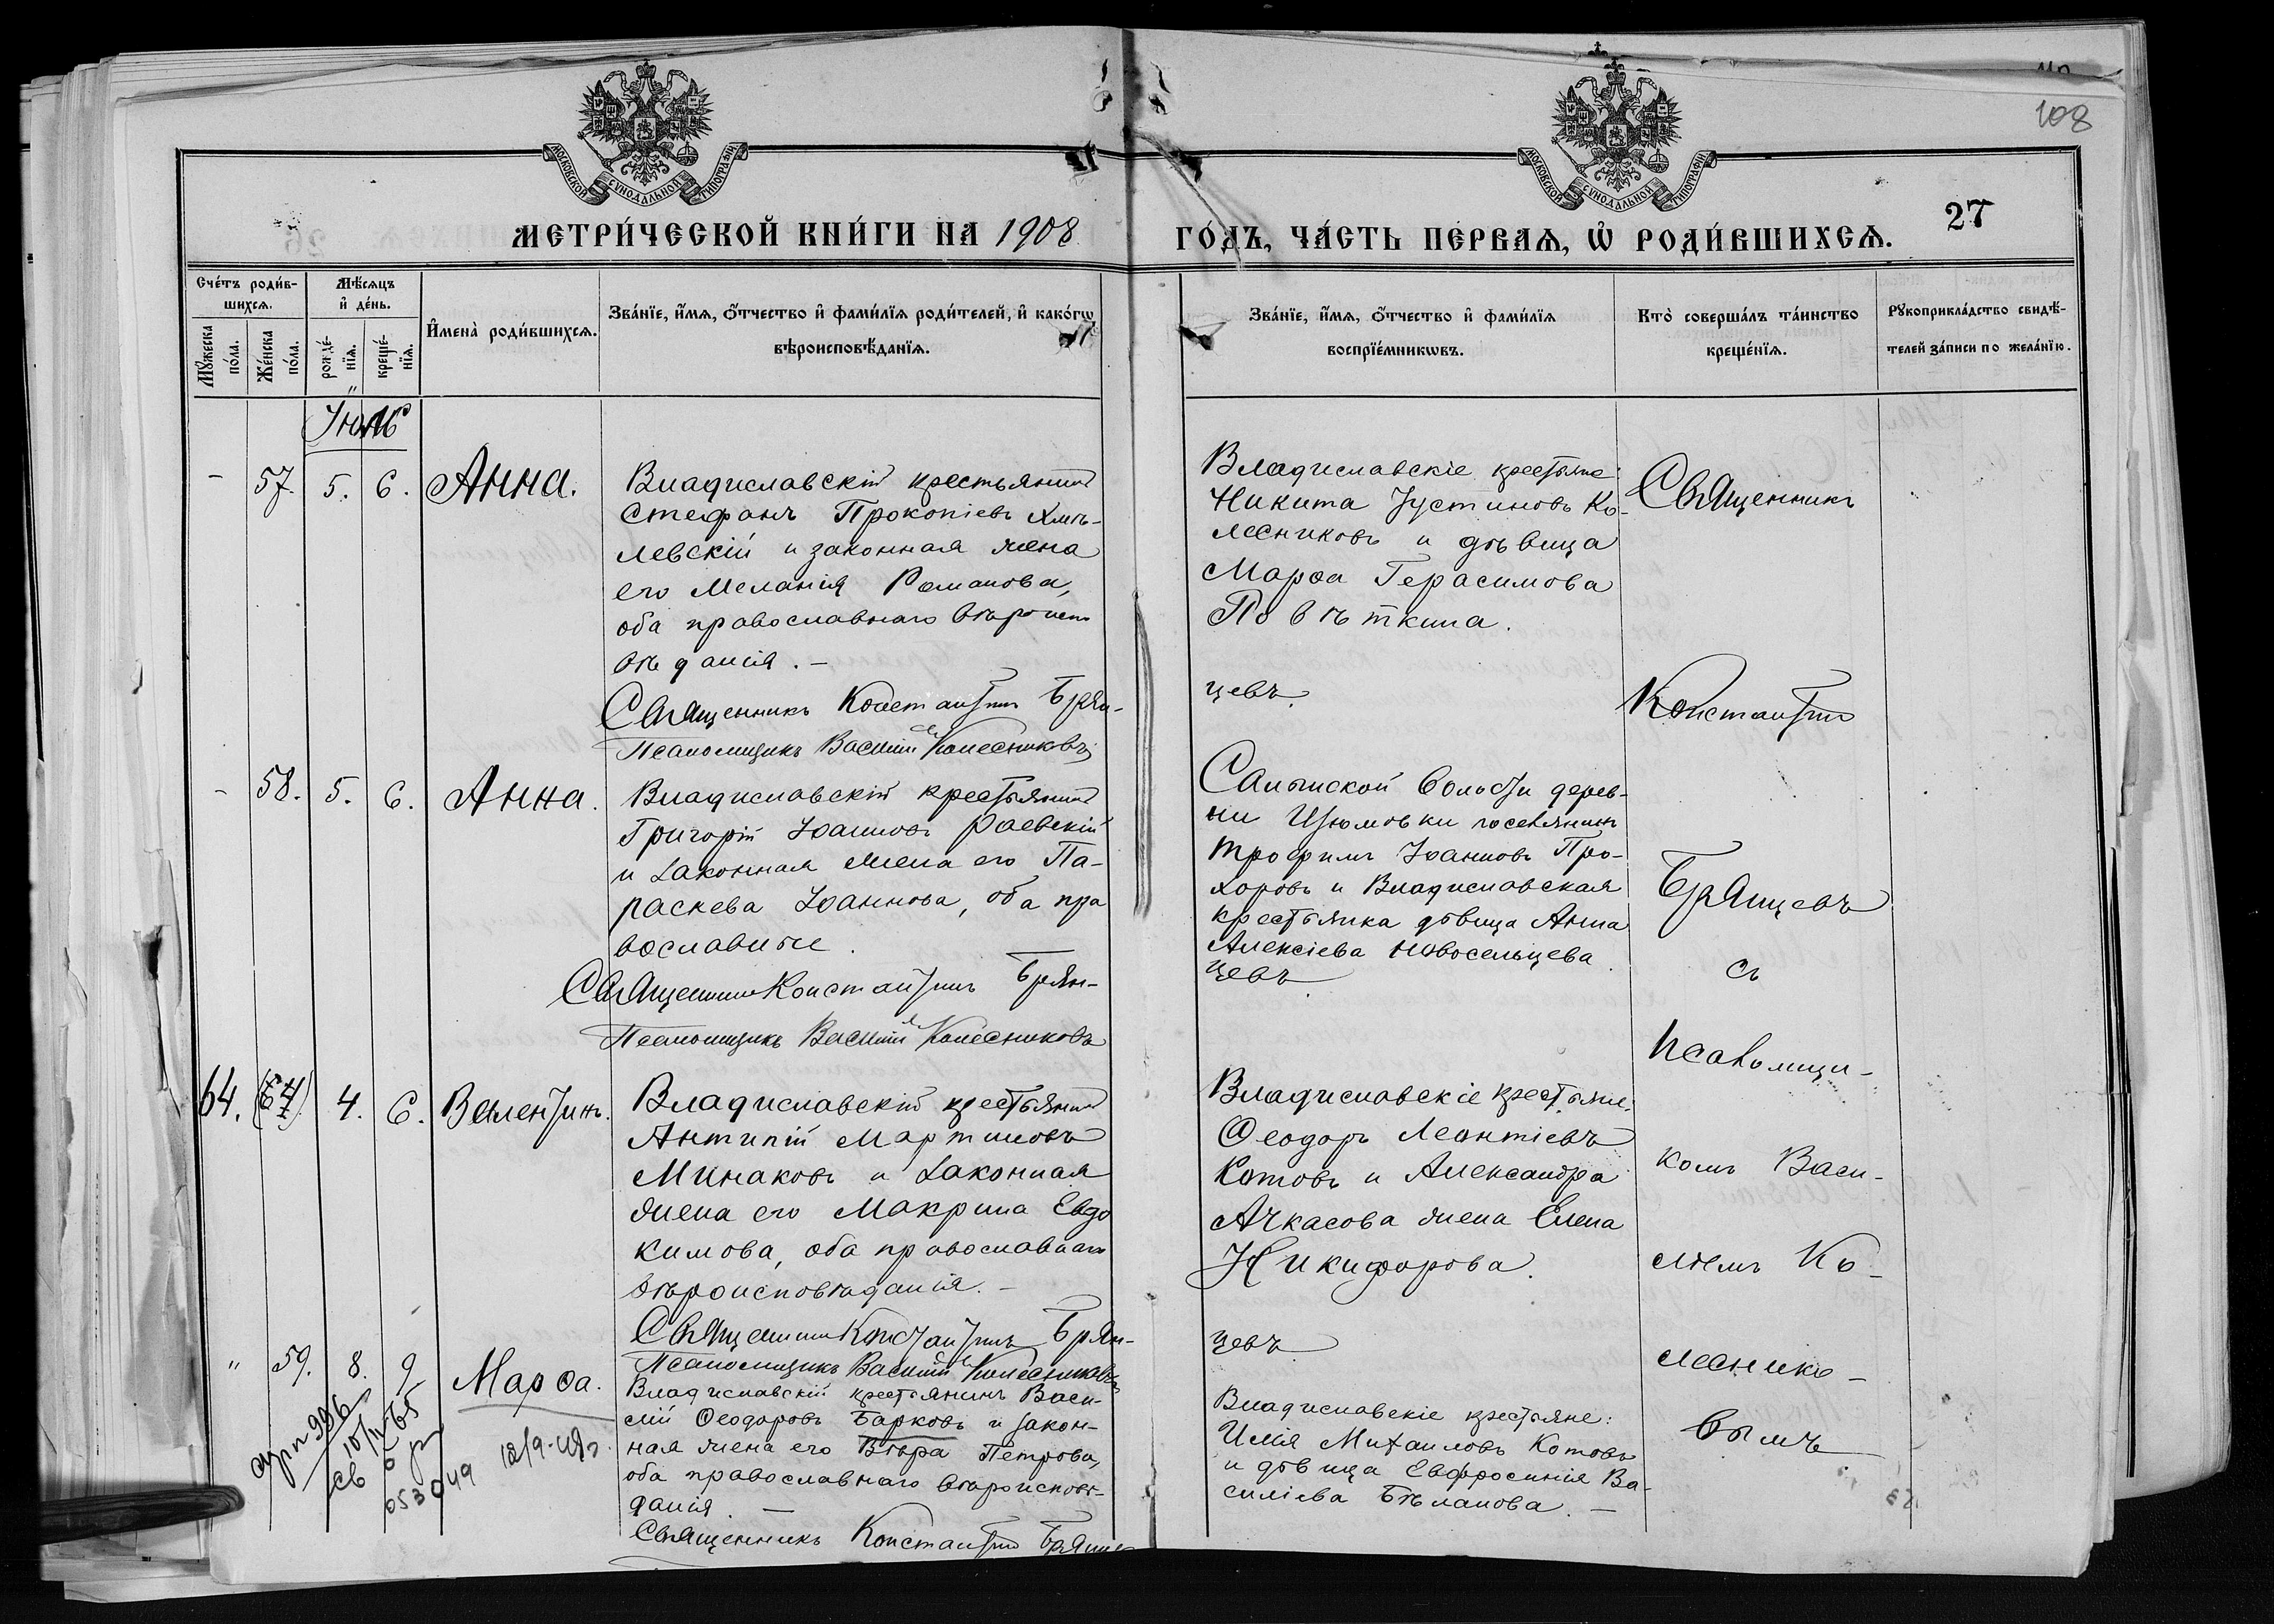 108
МОСКОВСКОЙ СѴНОДАЛЬНОЙ ТИПОГРАФІИ
МОСКОВСКОЙ СѴНОДАЛЬНОЙ ТИПОГРАФІИ
МЕТРИ́ЧЕСКОЙ КНИ́ГИ НА 1908
ГО́ДЪ, ЧА́СТЬ ПЕ́РВАѦ, Ѽ РОДИ́ВШИХСѦ.
27
Сче́тъ роди́в-
шихсѧ.
Мѣ́сѧцъ
и҆ де́нь.
Мꙋ́жеска
по́ла.
Же́нска
по́ла.
рожде́-
нїѧ.
креще́-
нїѧ.
И҆мена̀ роди́вшихсѧ.
Зва́нїе, и҆́мѧ, ѻ҆́тчество и҆ фами́лїѧ роди́телей, и҆ како́гѡ
вѣроисповѣ́данїѧ.
Зва́нїе, и҆́мѧ, ѻ҆́тчество и҆ фами́лїѧ
воспрїе́мникѡвъ.
Кто̀ соверша́лъ та́инство
креще́нїѧ.
Рꙋкоприкла́дство свидѣ́-
телей за́писи по жела́нїю.
Іюль
- 57. 5. 6. Анна.
Владиславскій крестьянинъ
Стефанъ Прокопіевъ Хмѣ-
левскій и законная жена
его Меланія Романова,
оба православнаго вѣроиспо
вѣданія. -
Священникъ Константинъ Брян-
Псаломщикъ Василій Колесниковъ
Владиславскіе крестьяне:
Никита Іустиновъ Ко-
лесниковъ и дѣвица
Марѳа Герасимова
Повѣткина.
цевъ.
- 58. 5. 6. Анна.
Владиславскій крестьянинъ
Григорій Іоанновъ Раевскій
и законная жена его Па-
раскева Іоаннова, оба пра
вославные.
Священникъ Константинъ Брян-
Псаломщикъ Василій Колесниковъ
волости дерев-
ни Изюмовки поселянинъ
Трофимъ Іоанновъ Про-
хоровъ и Владиславская
крестьянка дѣвица Анна
Алексіева Новосельцева.
цевъ
64. 4. 6. Валентинъ.
Владиславскій крестьянинъ
Антипій Мартиновъ
Минаковъ и законная
жена его Макрина Евдо
кимова, оба православнаго
вѣроисповѣданія. -
Священникъ Константинъ Брян-
Псаломщикъ Василій Колесниковъ
Владиславскіе крестьяне:
Ѳеодоръ Леонтіевъ
Котовъ и Александра
Ачкасова жена Елена
Никифорова.
цевъ
" 59. 8. 9 Марѳа.
Владиславскій крестьянинъ Васи-
лій Ѳеодоровъ Барковъ и закон-
ная жена его Вѣра Петрова,
оба православнаго вѣроисповѣ-
данія. -
Священникъ Константинъ Брянце
Владиславскіе крестьяне:
Илія Михаиловъ Котовъ
и дѣвица Евфросинія Ва-
силіева Бѣланова. -
Священникъ
Константинъ
Брянцевъ
съ
псаломщи-
комъ Васи-
ліемъ Ко-
леснико-
вымъ
053049